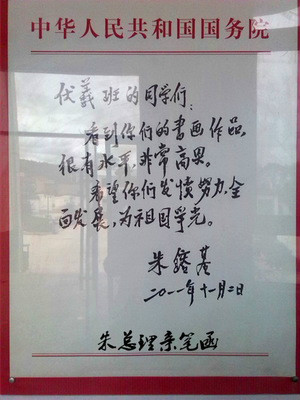 中华人民共和国国务院
伏羲班的同学们：
看到你们的书画作品，
很有水平，非常高兴。
希望你们发愤努力，全
面发展，为祖国争光。
朱鎔基
二〇一一年十一月二日
朱总理亲笔函